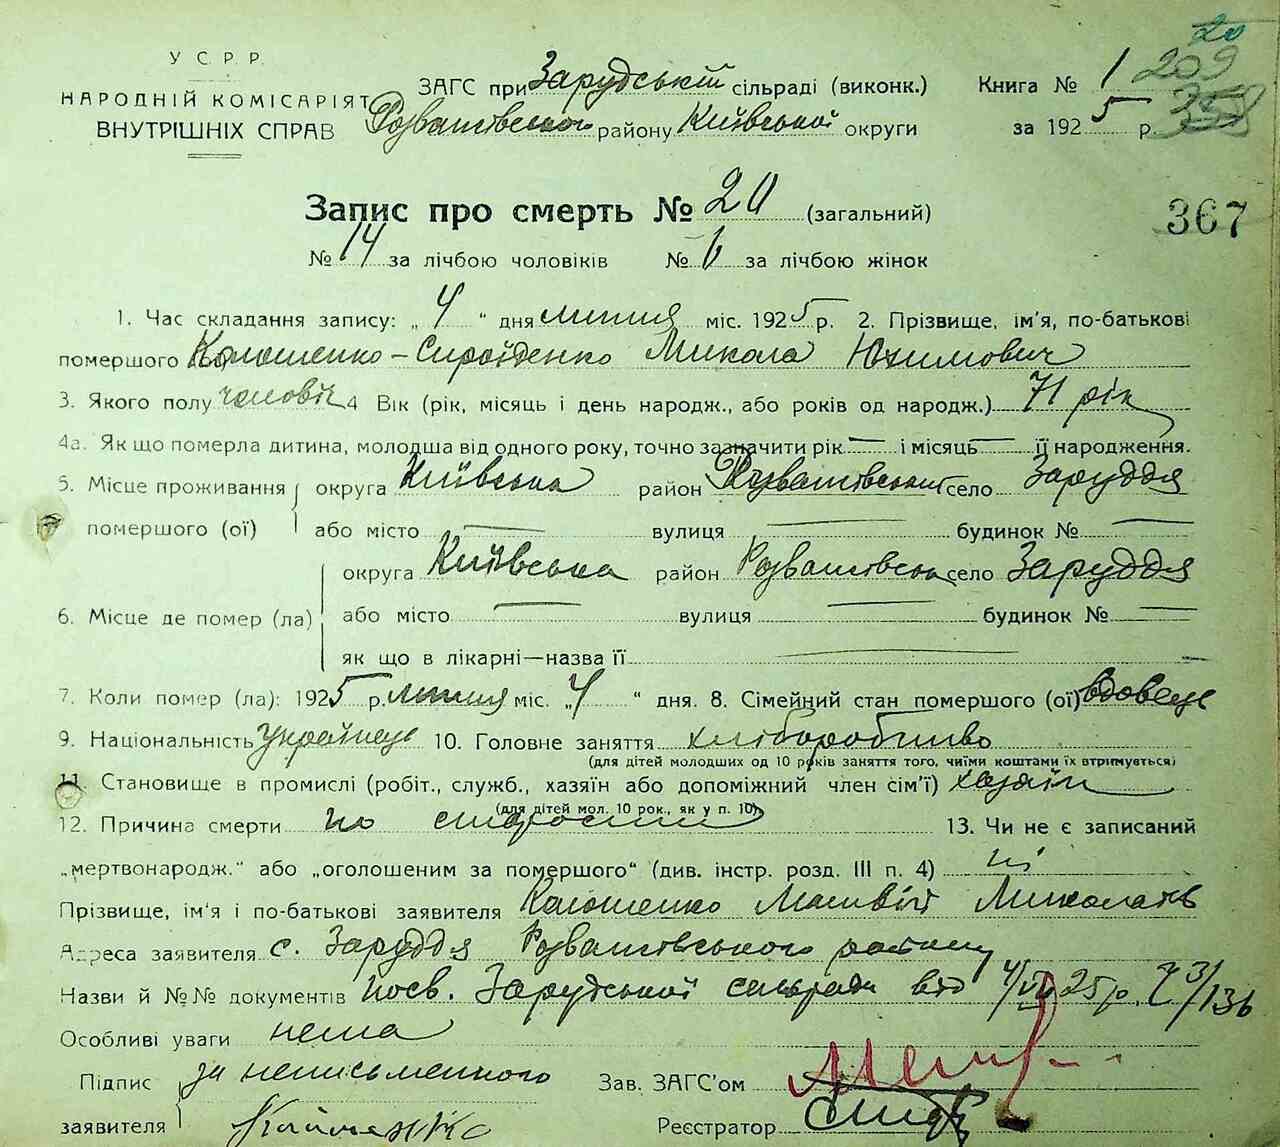 20
У С. Р. Р.
НАРОДНІЙ КОМІСАРІЯТ
ВНУТРІШНІХ СПРАВ
ЗАГС при Зарудській сільраді (виконк.)
Розважівського району Київської округи
Книга № 1 209
за 1925 р. 358
Запис про смерть № 20 (загальний)
367
№ 14 за лічбою чоловіків № 6 за лічбою жінок
1. Час складання запису: „4“ дня липня міс. 1925 р. 2. Прізвище, ім’я, по-батькові
помершого Колошенко-Сироїденко Микола Юхимович
3. Якого полу чоловіч 4 Вік (рік, місяць і день народж., або років од народж.) 71 рік
4а. Як що померла дитина, молодша від одного року, точно зазначити рік — і місяць — її народження.
5. Місце проживання округа Київська район Розважівський село Заруддя
помершого (ої) або місто — вулиця — будинок № —
округа Київська район Розважівськ село Заруддя
6. Місце де помер (ла) або місто — вулиця — будинок № —
як що в лікарні—назва її —
7. Коли помер (ла): 1925 р. липня міс. „4“ дня. 8. Сімейний стан помершого (ої) вдовець
9. Національність Українець 10. Головне заняття хліборобство
(для дітей молодших од 10 років заняття того, чиїми коштами їх втримується)
11. Становище в промислі (робіт., служб., хазяїн або допоміжний член сім’ї) хазяїн
(для дітей мол. 10 рок., як у п. 10)
12. Причина смерти по старости 13. Чи не є записаний
„мертвонародж.“ або „оголошеним за помершого“ (див. інстр. розд. III п. 4) ні
Прізвище, ім’я і по-батькові заявителя Колошенко Матвій Миколаїв
Адреса заявителя с. Заруддя Розважівського району
Назви й №№ документів посв. Зарудської сельради від 4/VII 25 р. Ч 3/136
Особливі уваги нема
Підпис за неписьменного Зав. ЗАГС’ом
заявителя Реєстратор